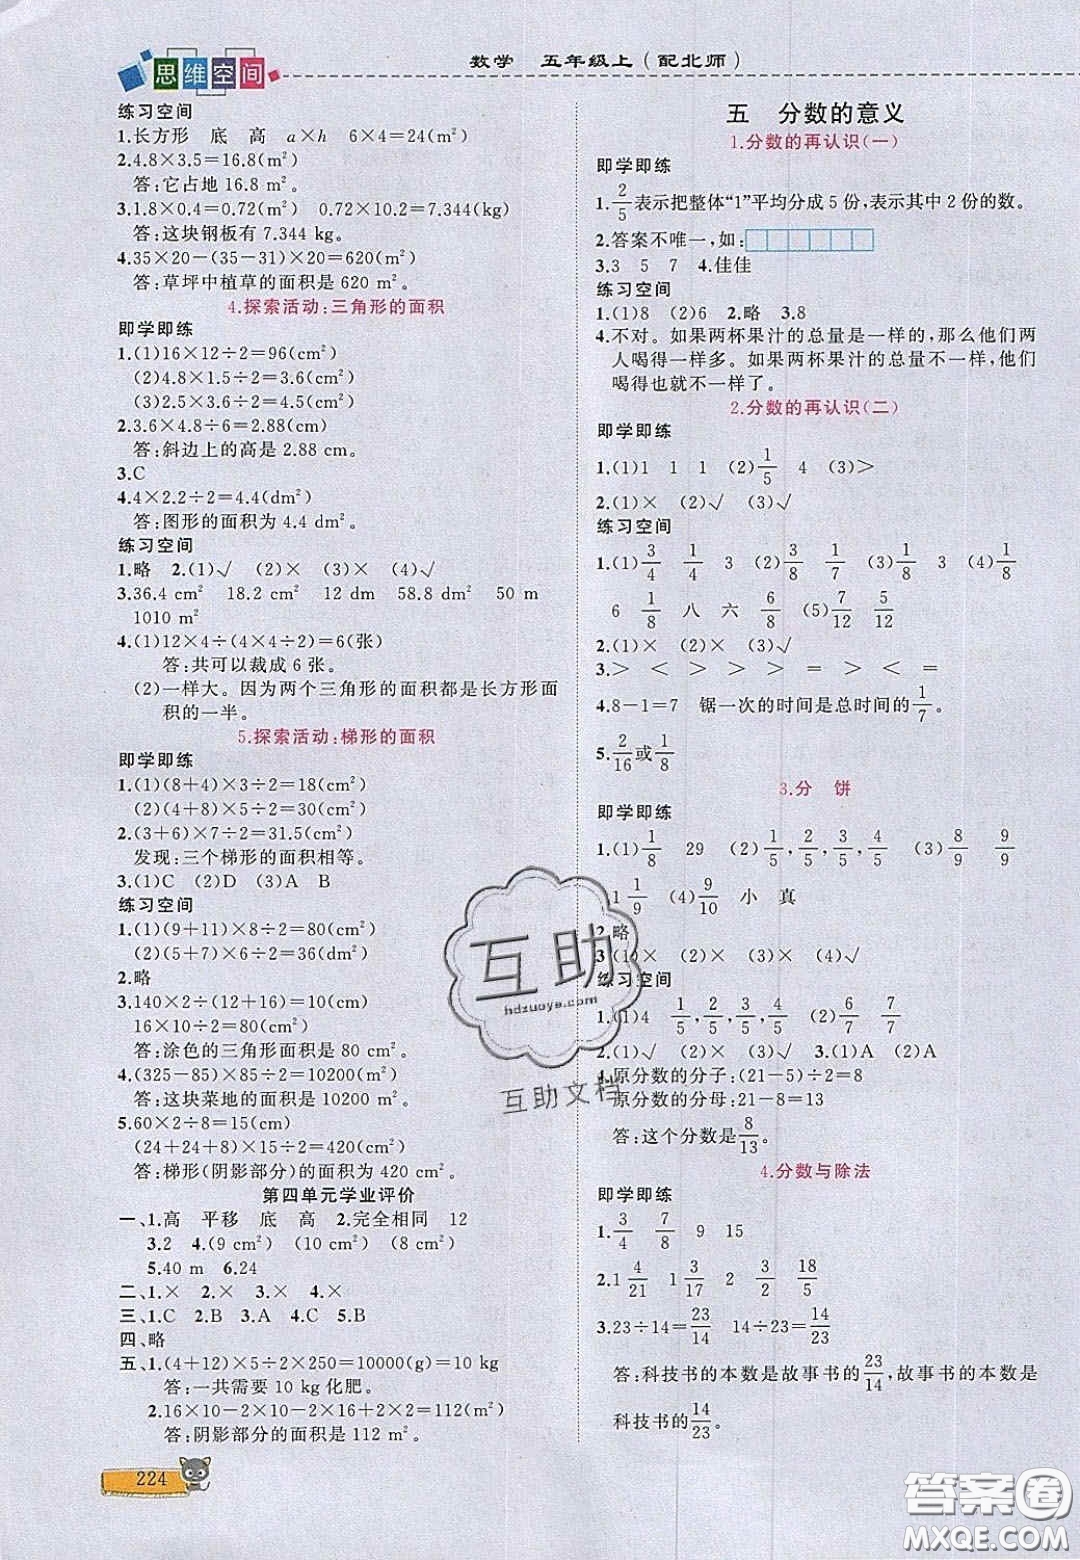 思维空间
数学 五年级上(配北师)
练习空间
1.长方形 底 高 a×h 6×4=24(m²)
2.4.8×3.5=16.8(m²)
答:它占地 16.8 m²。
3.1.8×0.4=0.72(m²) 0.72×10.2=7.344(kg)
答:这块钢板有 7.344 kg。
4.35×20-(35-31)×20=620(m²)
答:草坪中植草的面积是 620 m²。
4.探索活动:三角形的面积
即学即练
1.(1)16×12÷2=96(cm²)
(2)4.8×1.5÷2=3.6(cm²)
(3)2.5×3.6÷2=4.5(cm²)
2.3.6×4.8÷6=2.88(cm)
答:斜边上的高是 2.88 cm。
3.C
4.4×2.2÷2=4.4(dm²)
答:图形的面积为 4.4 dm²。
练习空间
1.略 2.(1)√ (2)× (3)× (4)√
3.36.4 cm² 18.2 cm² 12 dm 58.8 dm² 50 m
1010 m²
4.(1)12×4÷(4×4÷2)=6(张)
答:共可以裁成 6 张。
(2)一样大。因为两个三角形的面积都是长方形面
积的一半。
5.探索活动:梯形的面积
即学即练
1.(1)(8+4)×3÷2=18(cm²)
(2)(4+8)×5÷2=30(cm²)
2.(3+6)×7÷2=31.5(cm²)
发现:三个梯形的面积相等。
3.(1)C (2)D (3)A B
练习空间
1.(1)(9+11)×8÷2=80(cm²)
(2)(5+7)×6÷2=36(dm²)
2.略
3.140×2÷(12+16)=10(cm)
16×10÷2=80(cm²)
答:涂色的三角形面积是 80 cm²。
4.(325-85)×85÷2=10200(m²)
答:这块菜地的面积是 10200 m²。
5.60×2÷8=15(cm)
(24+24+8)×15÷2=420(cm²)
答:梯形(阴影部分)的面积为 420 cm²。
第四单元学业评价
一、1.高 平移 底 高 2.完全相同 12
3.2 4.(9 cm²) (10 cm²) (8 cm²)
5.40 m 6.24
二、1.× 2.× 3.× 4.×
三、1.C 2.B 3.A 4.C 5.B
四、略
五、1.(4+12)×5÷2×250=10000(g)=10 kg
答:一共需要 10 kg化肥。
2.16×10-2×10-2×16+2×2=112(m²)
答:阴影部分的面积是 112 m²。
224
五 分数的意义
1.分数的再认识(一)
即学即练
1.2/5表示把整体“1”平均分成 5 份,表示其中 2 份的数。
2.答案不唯一,如:
3.3 5 7 4.佳佳
练习空间
1.(1)8 (2)6 2.略 3.8
4.不对。如果两杯果汁的总量是一样的,那么他们两
人喝得一样多。如果两杯果汁的总量不一样,他们
喝得也就不一样了。
2.分数的再认识(二)
即学即练
1.(1)1 1 1 (2)1/5 4 (3)>
2.(1)× (2)√ (3)√
练习空间
1.(1)3/4 1/4 3 (2)3/8 1/8 (3)1/8 3 (4)1/8
6 1/8 八 六 6/8 (5)7/12 5/12
2.(1)√ (2)× (3)×
3.> < > > > = > < =
4.8-1=7 锯一次的时间是总时间的1/7。
5.2/16或1/8
3.分 饼
即学即练
1.(1)1/8 29 (2)1/5,2/5,3/5,4/5 (3)8/9 9/9
1 1/9 (4)9/10 小 真
2.略
3.(1)× (2)× (3)× (4)√
练习空间
1.(1)4 1/5,2/5,3/5,4/5 (2)6/7 7/7
2.(1)√ (2)× (3)√ 3.(1)A (2)A
4.原分数的分子:(21-5)÷2=8
原分数的分母:21-8=13
答:这个分数是8/13。
4.分数与除法
即学即练
1.3/4 7/8 9 15
2.1 4/21 1 3/17 2 3/2 18/5
3.23÷14=23/14 14÷23=14/23
答:科技书的本数是故事书的23/14,故事书的本数是
科技书的14/23。
互助
hdzuoye.com
互助文档
答案圈
MXQE.COM